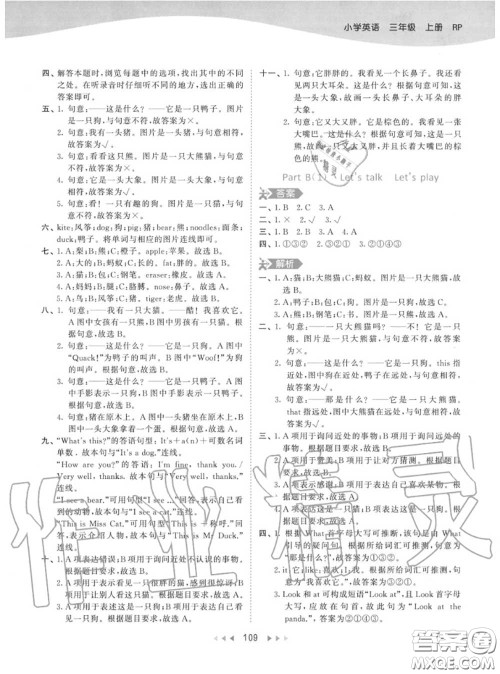 小学英语 三年级 上册 RP
四、解答本题时,浏览每题中的选项,找出其中的不同
之处。在听录音时仔细听不同的地方,选出正确的
答案即可。
五、1. 句意:——这是什么?——它是一只鸭子。图片
是一只狗,与句意不符,故答案为×。
2. 句意:我有一头猪。图片是一头猪,与句意相符,
故答案为√。
3. 句意:看看这只熊。图片是一只大熊猫,与句意
不符,故答案为×。
4. 句意:它是一头大象。图片是一头大象,与句意
相符,故答案为√。
5. 句意:看!一只有趣的狗。图片是一只猫,与句
意不符,故答案为×。
六、kite:风筝;dog:狗;pig:猪;bear:熊;noodles:面条;
duck:鸭子。将单词与相应的图片连线即可。
七、1. A:梨;B:熊;C:橙子。apple:苹果。故选 B。
2. A:大的;B:蚂蚁;C:狗。fat:胖的。故选 A。
3. A:鸭子;B:包;C:钢笔。eraser:橡皮。故选 A。
4. A:妈妈;B:腿;C:胳膊。nose:鼻子。故选 A。
5. A:鸟;B:风筝;C:猪。tiger:老虎。故选 B。
八、1. 句意:——我有一只大猫。——酷!我喜欢它。
A 图中女孩有一只大猫;B 图中男孩有一只猫。
根据句意,故选 A。
2. 句意:——这是什么?——它是一只鸭子。A 图中
“Quack!”为鸭子的叫声。B 图中“Woof!”为狗
的叫声。根据句意,故选 A。
3. 句意:——这是什么?——它是一只鸭子。A 图中
手影表示一只鸭子,B 图中手影表示一只狗。
根据句意,故选 A。
4. 句意:猪在原木上。A 图中一头猪坐在原木上,B 图
中一头大象拿着一个蛋。根据句意,故选 A。
九、“What's this?”的答语句型:It's+a(n)+可数名词
单数。故本句与“It's a dog.”连线。
“How are you?”的答语:I'm fine, thank you./
Very well, thanks. 故本句与“Very well, thanks.”
连线。
“I see a bear.”可用句型“I see ...”回答,表示自己看
到的动物,故本句与“I see a cat.”连线。
“This is Miss Cat.”可用句型“This is +称呼.”回
答,表示介绍人物,故本句与“This is Mr Duck.”
连线。
十、1. A 项表达错误;B 项用于询问近处不认识的事物。
根据题目要求,故选 B。
2. A 项用于表示看见一只很胖的猫,感到很惊讶;B 项
用于让别人看这只猫。根据题目要求,故选 A。
3. A 项用于表示喜欢;B 项用于表示自己看见一
头熊。根据题目要求,故选 B。
十一、1. 句意:它胖胖的。我看见一个长鼻子。我还看
见两只大耳朵。这是什么?根据句意可知,这
是一头大象,故画一头长鼻子、大耳朵的胖大
象。
2. 句意:它又大又胖。它是棕色的。我看见一张
大嘴巴。这是什么?根据句意可知,这是一只
熊,故画一只又大又胖,并且长着大嘴巴的棕
色的熊。
Part B(1) Let's talk Let's play
答案
一、1. B 2. C 3. A
二、1. × 2. √ 3. √
三、1. B 2. A 3. A
四、1. ①③② 2. ③①② 3. ②①④③
解析
一、1. A:猫;B:大熊猫;C:蚂蚁。图片是一只大熊猫,
故选 B。
2. A:鸭子;B:包;C:狗。图片是一只狗,故选 C。
3. A:熊;B:鸟;C:钢笔。图片是一只熊,故选 A。
二、1. 句意:——一只大熊猫吗?——不!它是一只
熊。图片是一只大熊猫和一只猫,与句意不符,
故答案为×。
2. 句意:——这是什么?——它是一只狗。this 指
近处,图中狗在近处,鸭子在远处,与句意相符,
故答案为√。
3. 句意:——那是什么?——它是一只大熊猫。
that 指远处,图中大熊猫在远处,与句意相符,
故答案为√。
三、1. A 项用于询问近处的事物;B 项用于询问远处的
事物。根据题目要求,故选 B。
2. A 项用于赞美;B 项用于让对方猜测。根据题目
要求,故选 A。
3. A 项表示感谢;B 项表示自己喜欢某物。根据题
目要求,故选 A。
四、1. 根据 What 首字母大写可推断,该句是由 What
引导的疑问句。根据所给词汇可推测,句意为
“那是什么?”,故答案为①③②。
2. it:它;like:喜欢;I:我。根据所给词汇可推测,句
意为“我喜欢它”,故答案为③①②。
3. Look 和 at 可构成短语“Look at”且 Look 首字母
大写,应放在句首,故此句为“Look at the
panda.”,故答案为②①④③。
109